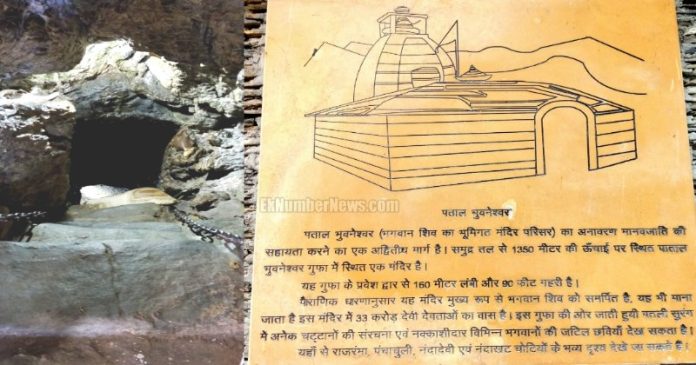 EkNumberNews.com
पताल भुवनेश्वर
पताल भुवनेश्वर (भगवान शिव का भूमिगत मंदिर परिसर) का अनावरण मानवजाति की
सहायता करने का एक अद्वितीय मार्ग है। समुद्र तल से 1350 मीटर की ऊँचाई पर स्थित पाताल
भुवनेश्वर गुफा में स्थित एक मंदिर है।
यह गुफा के प्रवेश द्वार से 160 मीटर लंबी और 90 फीट गहरी है।
पैराणिक धारणानुसार यह मंदिर मुख्य रूप से भगवान शिव को समर्पित है, यह भी माना
जाता है इस मंदिर में 33 करोड़ देवी देवताओं का वास है। इस गुफा की ओर जाती हुयी पतली सुरंग
में अनेक चट्टानों की संरचना एवं नक्काशीदार विभिन्न भगवानों की जटिल छवियाँ देख सकता है।
यहाँ से राजरंभा, पंचाचुली, नंदादेवी एवं नंदाखाट चोटियों के भव्य दृश्य देखे जा सकते हैं।